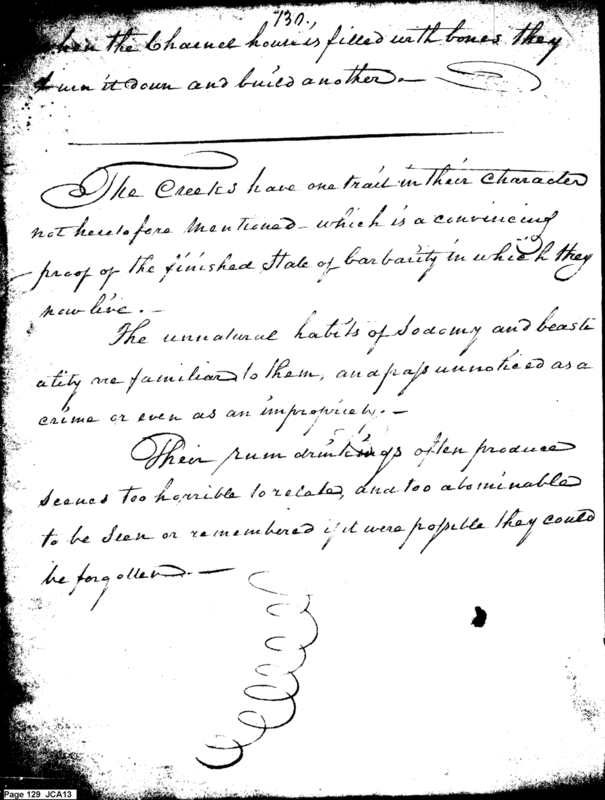 130.
when the Charnel house is filled with bones they
burn it down and build another.—
The Creeks have one trait in their Character
not heretofore mentioned – which is a convincing
proof of the finished State of barbarity in which they
now live. –
The unnatural habits of Sodomy and beasti
ality are familiar to them, and pass unnoticed as a
crime or even as an impropriety. –
Their rum drinkings often produce
scenes too horrible to relate, and too abominable
to be seen or remembered if it were possible they could
be forgotten. —
Page 129 JCA13